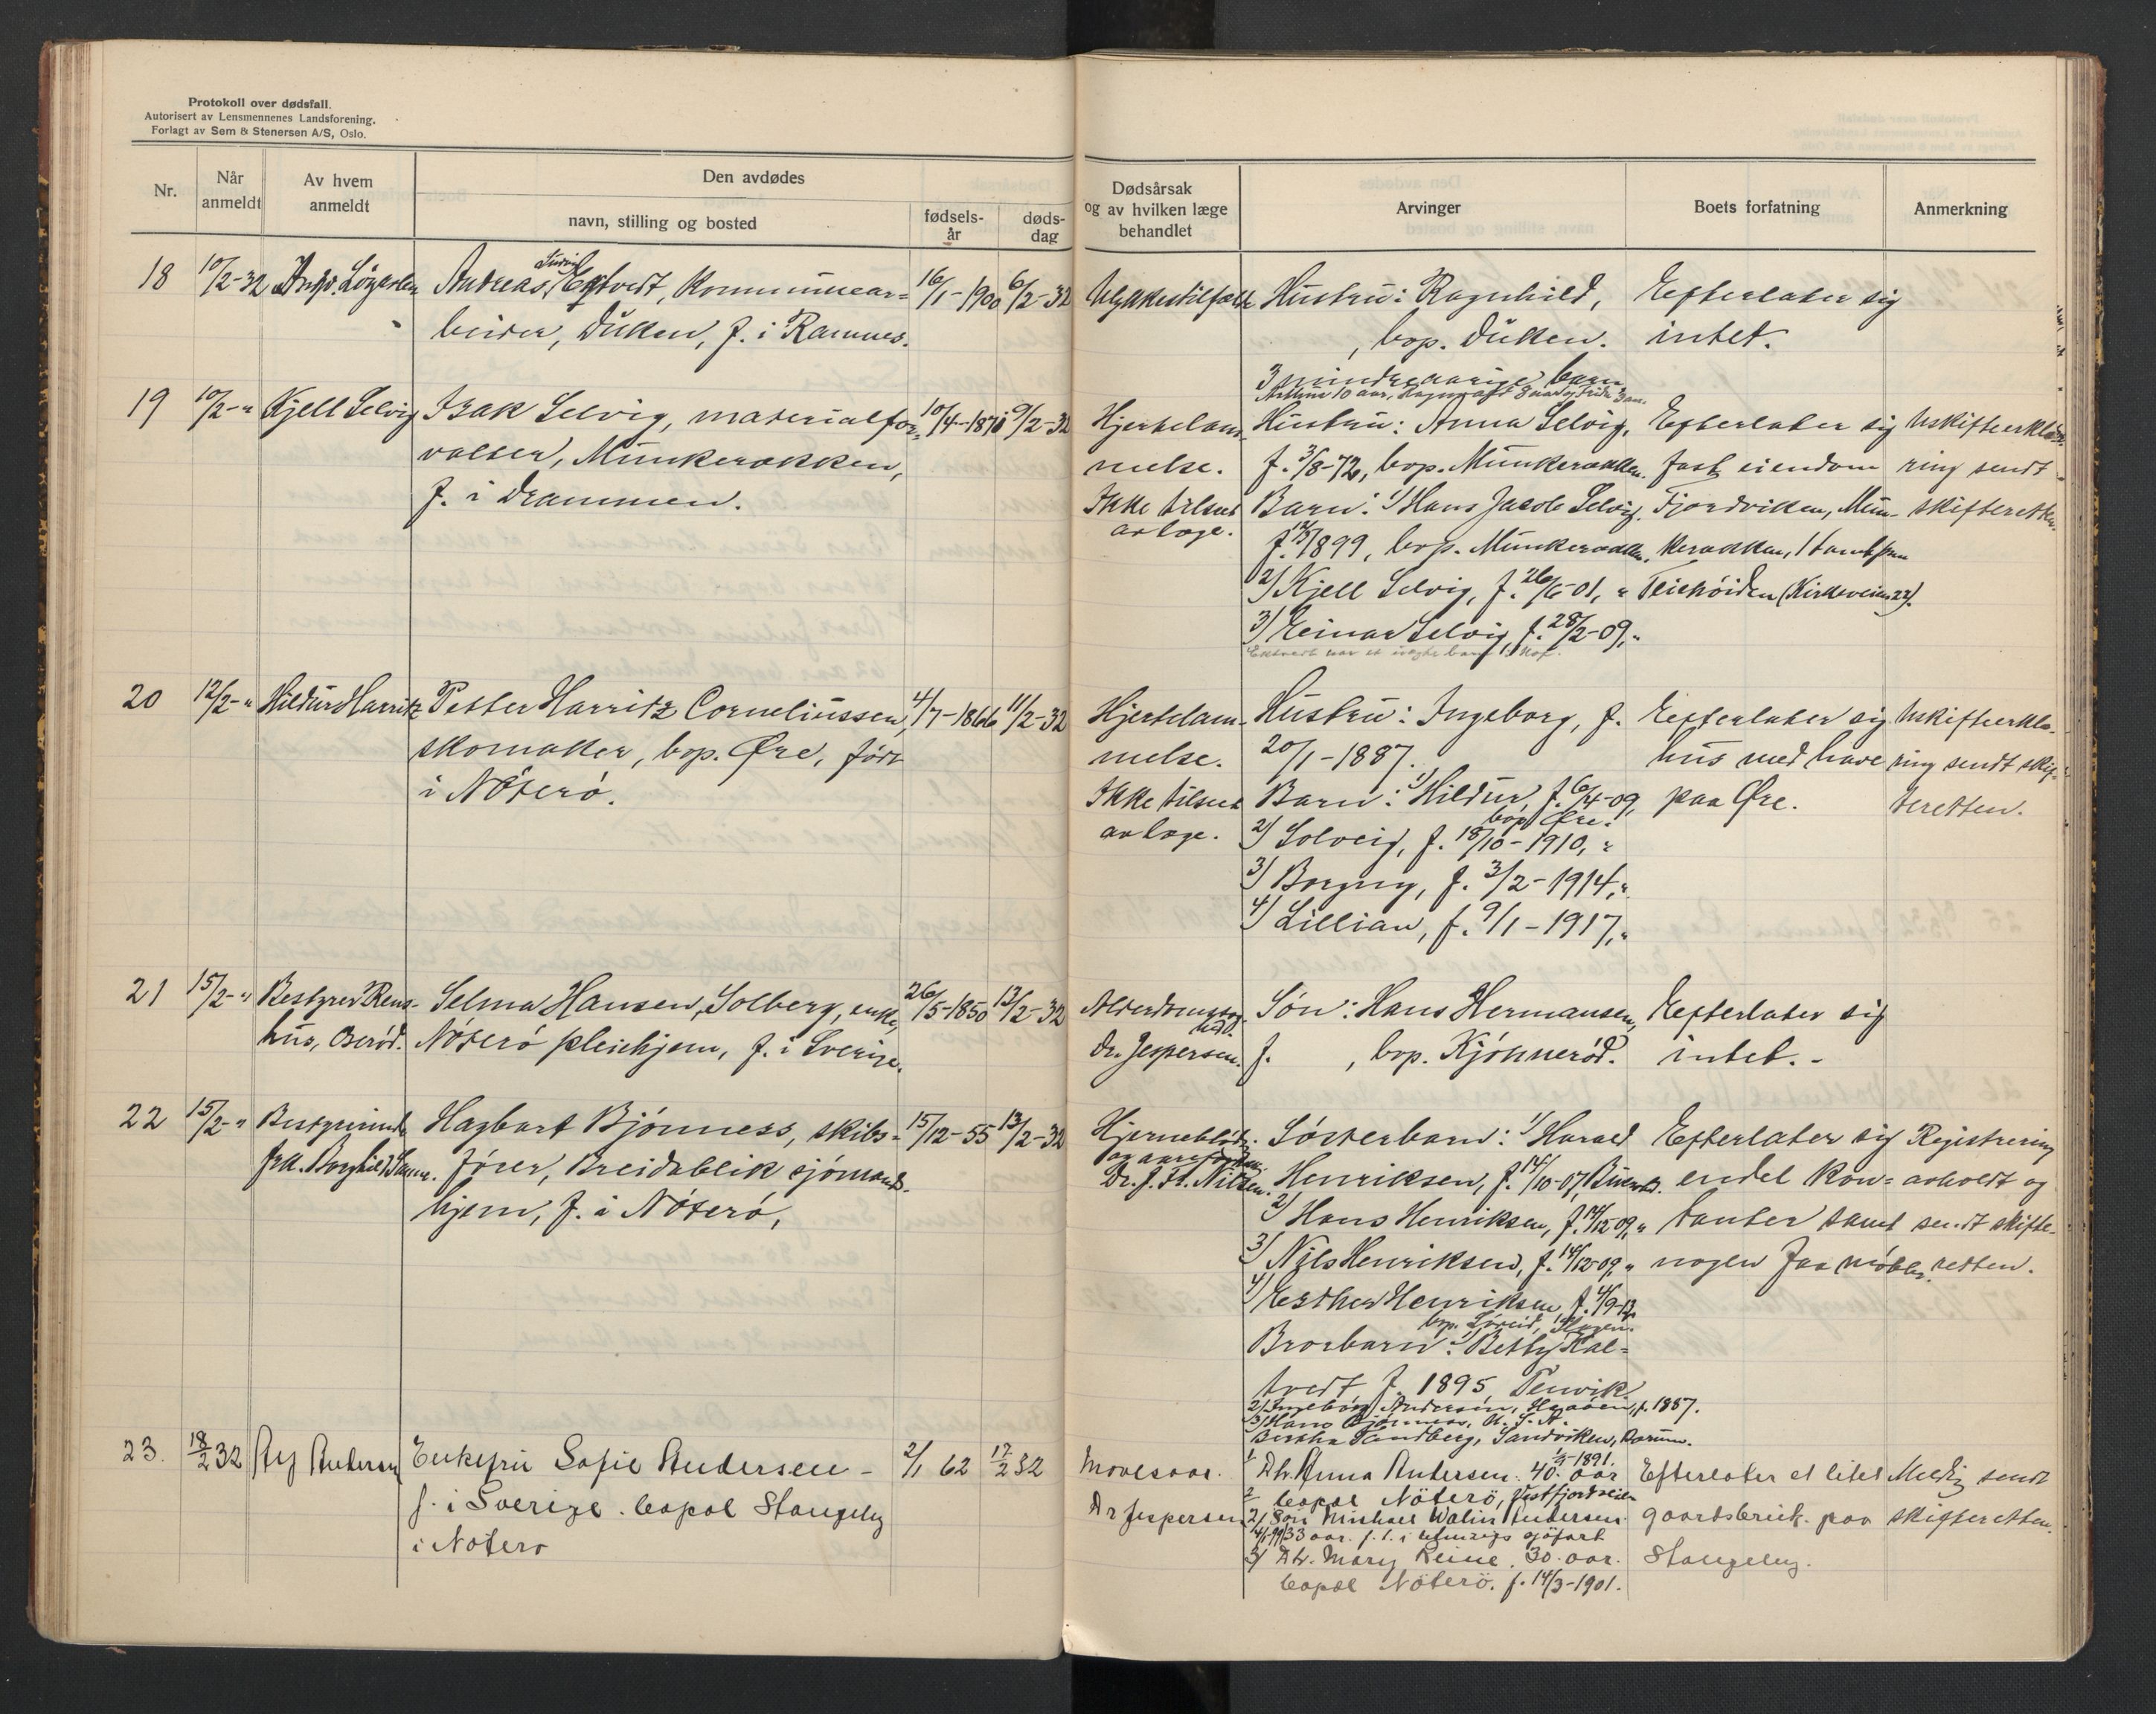 Protokoll over dødsfall.
Autorisert av Lensmennenes Landsforening.
Forlagt av Sem & Stenersen A/S, Oslo.
Nr.
Når anmeldt
Av hvem anmeldt
Den avdødes
navn, stilling og bosted
fødsels-år
døds-dag
Dødsårsak og av hvilken læge behandlet
Arvinger
Boets forfatning
Anmerkning
18 10/2-32
Andreas Ektvedt, Kommunear=
beider, Duken, f. i Ramnes.
16/1-1900 6/2-32
Hustru: Ragnhild,
, bop. Duken.
3 mindreaarige barn
Efterlater sig
intet.
19 10/2-" Kjell Selvig
Izak Selvig, materialfor-
valter, Munkerekken,
f. i Drammen.
9/2-32
Hjertelam-
melse.
Ikke tilset
av læge.
Hustru: Anna Selvig,
f. 3/8-72, bop. Munkerekken.
Barn: 1/ Hans Jacob Selvig,
1899, bop. Munkerekken.
2) Kjell Selvig, f. 26/6-01, "
3) Einar Selvig, f. 28/2-09, "
Efterlater sig
fast eiendom
Fjordvikken, Mun-
kerekken, 1 tomt
Teiehöiden (Kirkeveien 22).
Uskifteerklæ-
ring sendt
skifteretten.
20 12/2-" Hildur Harritz
Petter Harritz Corneliussen,
skomaker, bop. Øre, född
i Nöterö.
4/7-1866 11/2-32
Hjertelam-
melse.
Ikke tilset
av læge.
Hustru: Ingeborg, f.
20/1-1887.
Barn: 1/ Hildur, f. 6/4-09,
bop. Øre.
2) Solveig, f. 18/10-1910, "
3) Borgny, f. 3/2-1914, "
4) Lillian, f. 9/1-1917, "
Efterlater sig
hus med have
paa Øre.
Uskifteerklæ-
ring sendt skif-
teretten.
21 15/2-" Bestyrer Rens-
hus, Oserød.
Selma Hansen, Solberg, enke,
Nöterö pleiehjem, f. i Sverige.
26/5-1850 13/2-32
Dr. Jespersen.
Sön: Hans Hermansen,
f. , bop. Kjöhneröd.
Efterlater sig
intet.-
22 15/2-" Bestyrerinde
frk. Borghild
Hagbart Bjönness, skibs-
förer, Breidablik sjömands-
hjem, f. i Nöterö,
15/12-55 13/2-32
Dr. J. Fr. Nilsen.
Sösterbarn: 1/ Harald
Henriksen, f. 14/10-07,
2) Hans Henriksen, f. 14/12-09, "
3) Nils Henriksen, f. 14/12-09, "
4) Esther Henriksen, f. 4/9-12
Brorbarn: 1/ Betty Kal=
tvedt, f. 1895, Tenvik.
2) Ingeborg Andersen, f. 1887.
3) Hans Bjönness, U. S. A.
Bertha Sandberg, Sandviken, Bærum.
Efterlater sig
endel kon=
tanter samt
nogen faa möbler.
Registrering
avholdt og
sendt skifte-
retten.
23. 18/2 32 Andersen
Enkefru Sofie Andersen -
f. i Sverige. bopæl Stangeby
i Nøterø
2/1 62 17/2 32
Dr Jespersen
1/ Dtr. Anna Andersen. 40. aar
1891.
bopæl Nöterö, Vestfjordveien
2/ Sön Michael Walin Andersen
33 aar. f. t. i utenrigs sjöfart
3/ Dtr. Mary Reine. 30. aar.
bopæl Nöterö. f. 14/3-1901.
Efterlater et litet
gaardsbruk. paa
Stangeby.
sendt
skifteretten.